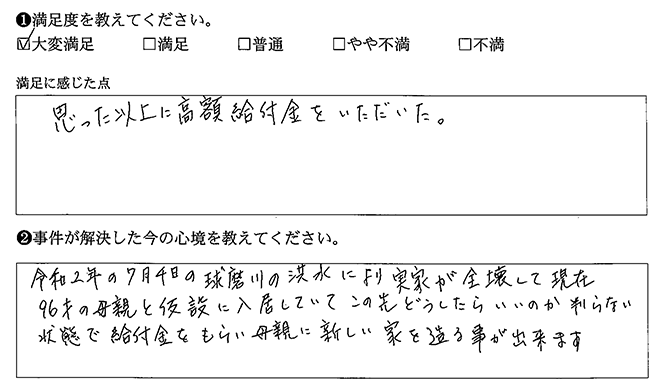 ❶満足度を教えてください。
☑大変満足 □満足 □普通 □やや不満 □不満
満足に感じた点
思った以上に高額給付金をいただいた。
❷事件が解決した今の心境を教えてください。
令和2年の7月4日の球磨川の洪水により実家が全壊して現在
96才の母親と仮設に入居していてこの先どうしたらいいのか判らない
状態で給付金をもらい母親に新しい家を造る事が出来ます